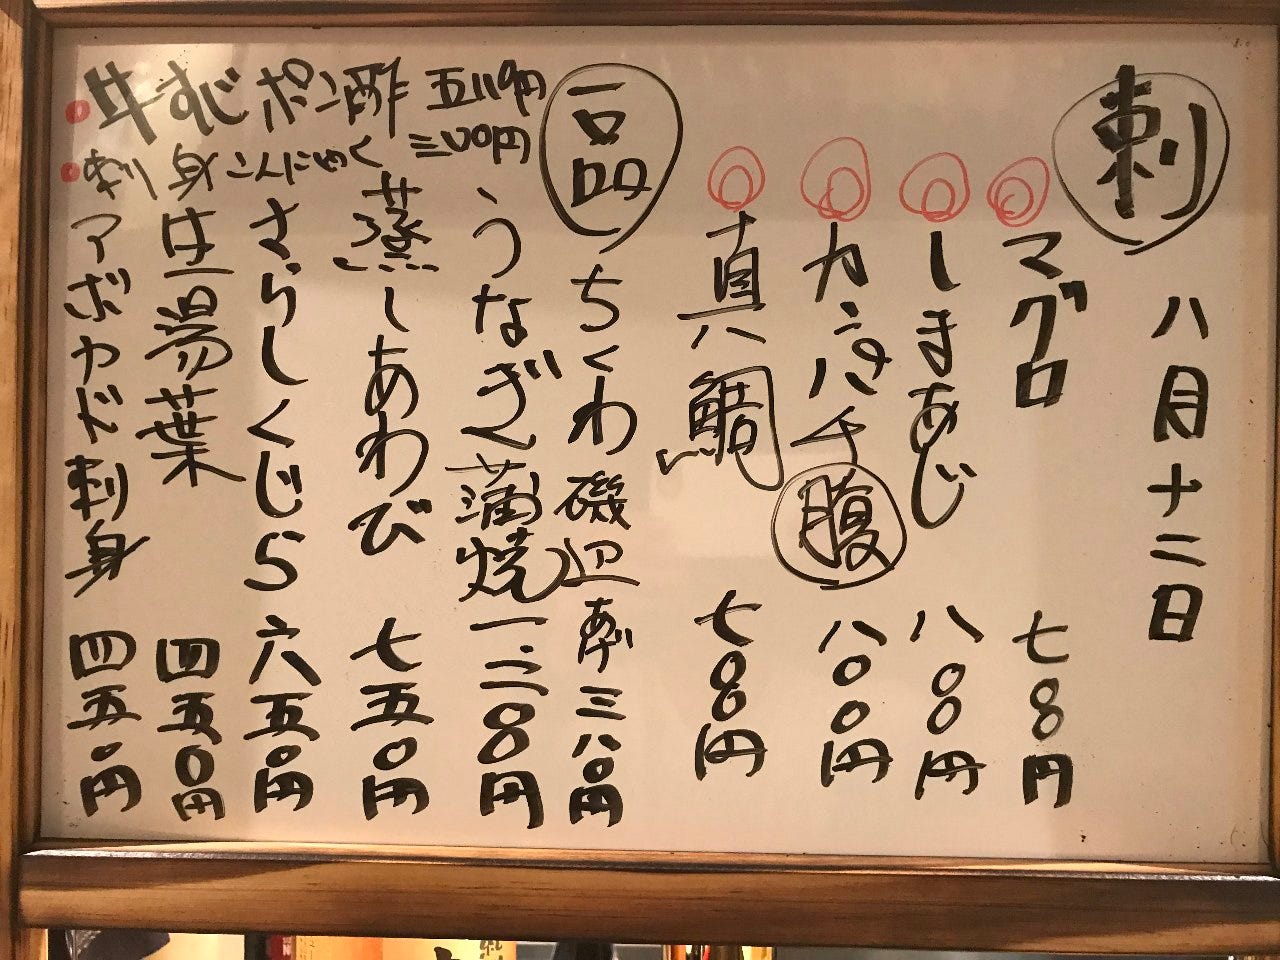 刺
八月十二日
マグロ 七〇〇円
しまあじ 八〇〇円
カンパチ 腹 八〇〇円
真鯛 七〇〇円
一品
ちくわ磯辺あげ 三八〇円
うなぎ蒲焼 一、二〇〇円
蒸しあわび 七五〇円
さらしくじら 六五〇円
生湯葉 四五〇円
アボカド刺身 四五〇円
牛すじポン酢 五八〇円
刺身こんにゃく 三〇〇円